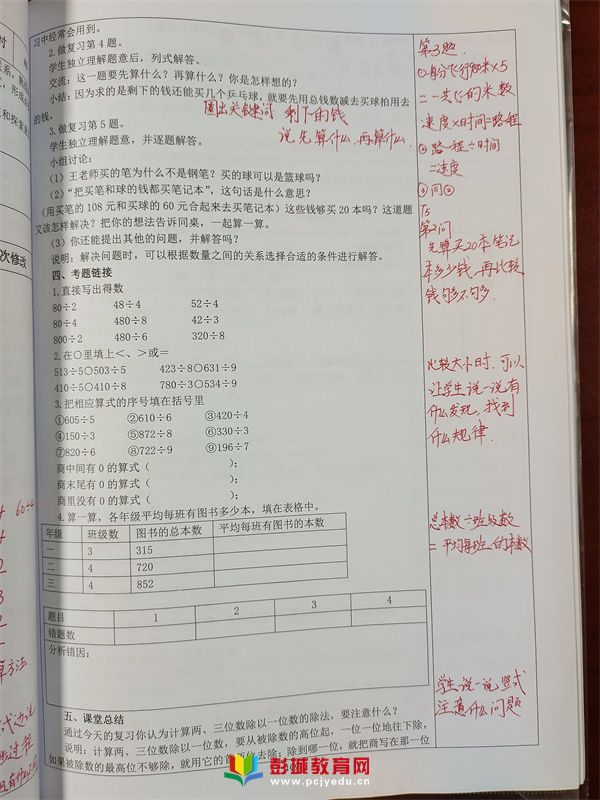 习中经常会用到。
2.做复习第4题。
学生独立理解题意后，列式解答。
交流：这一题要先算什么？再算什么？你是怎样想的？
小结：因为求的是剩下的钱还能买几个乒乓球，就要先用总钱数减去买球拍用去
的钱。
圈出关键词 剩下的钱
说先算什么，再算什么。
3.做复习第5题。
学生独立理解题意，并逐题解答。
小组讨论：
（1）王老师买的笔为什么不是钢笔？买的球可以是篮球吗？
（2）“把买笔和球的钱都买笔记本”，这句话是什么意思？
（用买笔的108元和买球的60元合起来去买笔记本）这些钱够买20本吗？这道题
又该怎样解决？把你的想法告诉同桌，一起算一算。
（3）你还能提出其他的问题，并解答吗？
说明：解决问题时，可以根据数量之间的关系选择合适的条件进行解答。
四、考题链接
1.直接写出得数
80÷2 48÷4 52÷4
80÷4 480÷8 42÷3
800÷2 480÷6 320÷8
2.在〇里填上＜、＞或＝
513÷5〇503÷5 423÷8〇631÷9
410÷5〇410÷8 780÷3〇534÷9
3.把相应算式的序号填在括号里
①605÷5 ②610÷6 ③420÷4
④150÷3 ⑤872÷8 ⑥330÷3
⑦820÷6 ⑧722÷9 ⑨196÷7
商中间有0的算式（ ）；
商末尾有0的算式（ ）；
商里没有0的算式（ ）；
4.算一算，各年级平均每班有图书多少本，填在表格中。
年级 班级数 图书的总本数 平均每班有图书的本数
一 3 315
二 4 720
三 4 852
题目 1 2 3 4
错题数
分析错因：
五、课堂总结
通过今天的复习你认为计算两、三位数除以一位数的除法，要注意什么？
说明：计算两、三位数除以一位数，要从被除数的高位起，一位一位地往下除，
如果被除数的最高位不够除，就用它的前两位去除；除到哪一位，就把商写在那一位
第3题
速度×时间=路程
② 路程÷时间
=速度
③同②
T5
第2问
先算买20本笔记
本多少钱，再比较
钱够不够。
比较大小时，可以
让学生说一说有
什么发现，找到
什么规律
总本数÷班级数
=平均每班的本数
学生说一说竖式
注意什么问题
次修改
彭城教育网
www.pcjyedu.cn